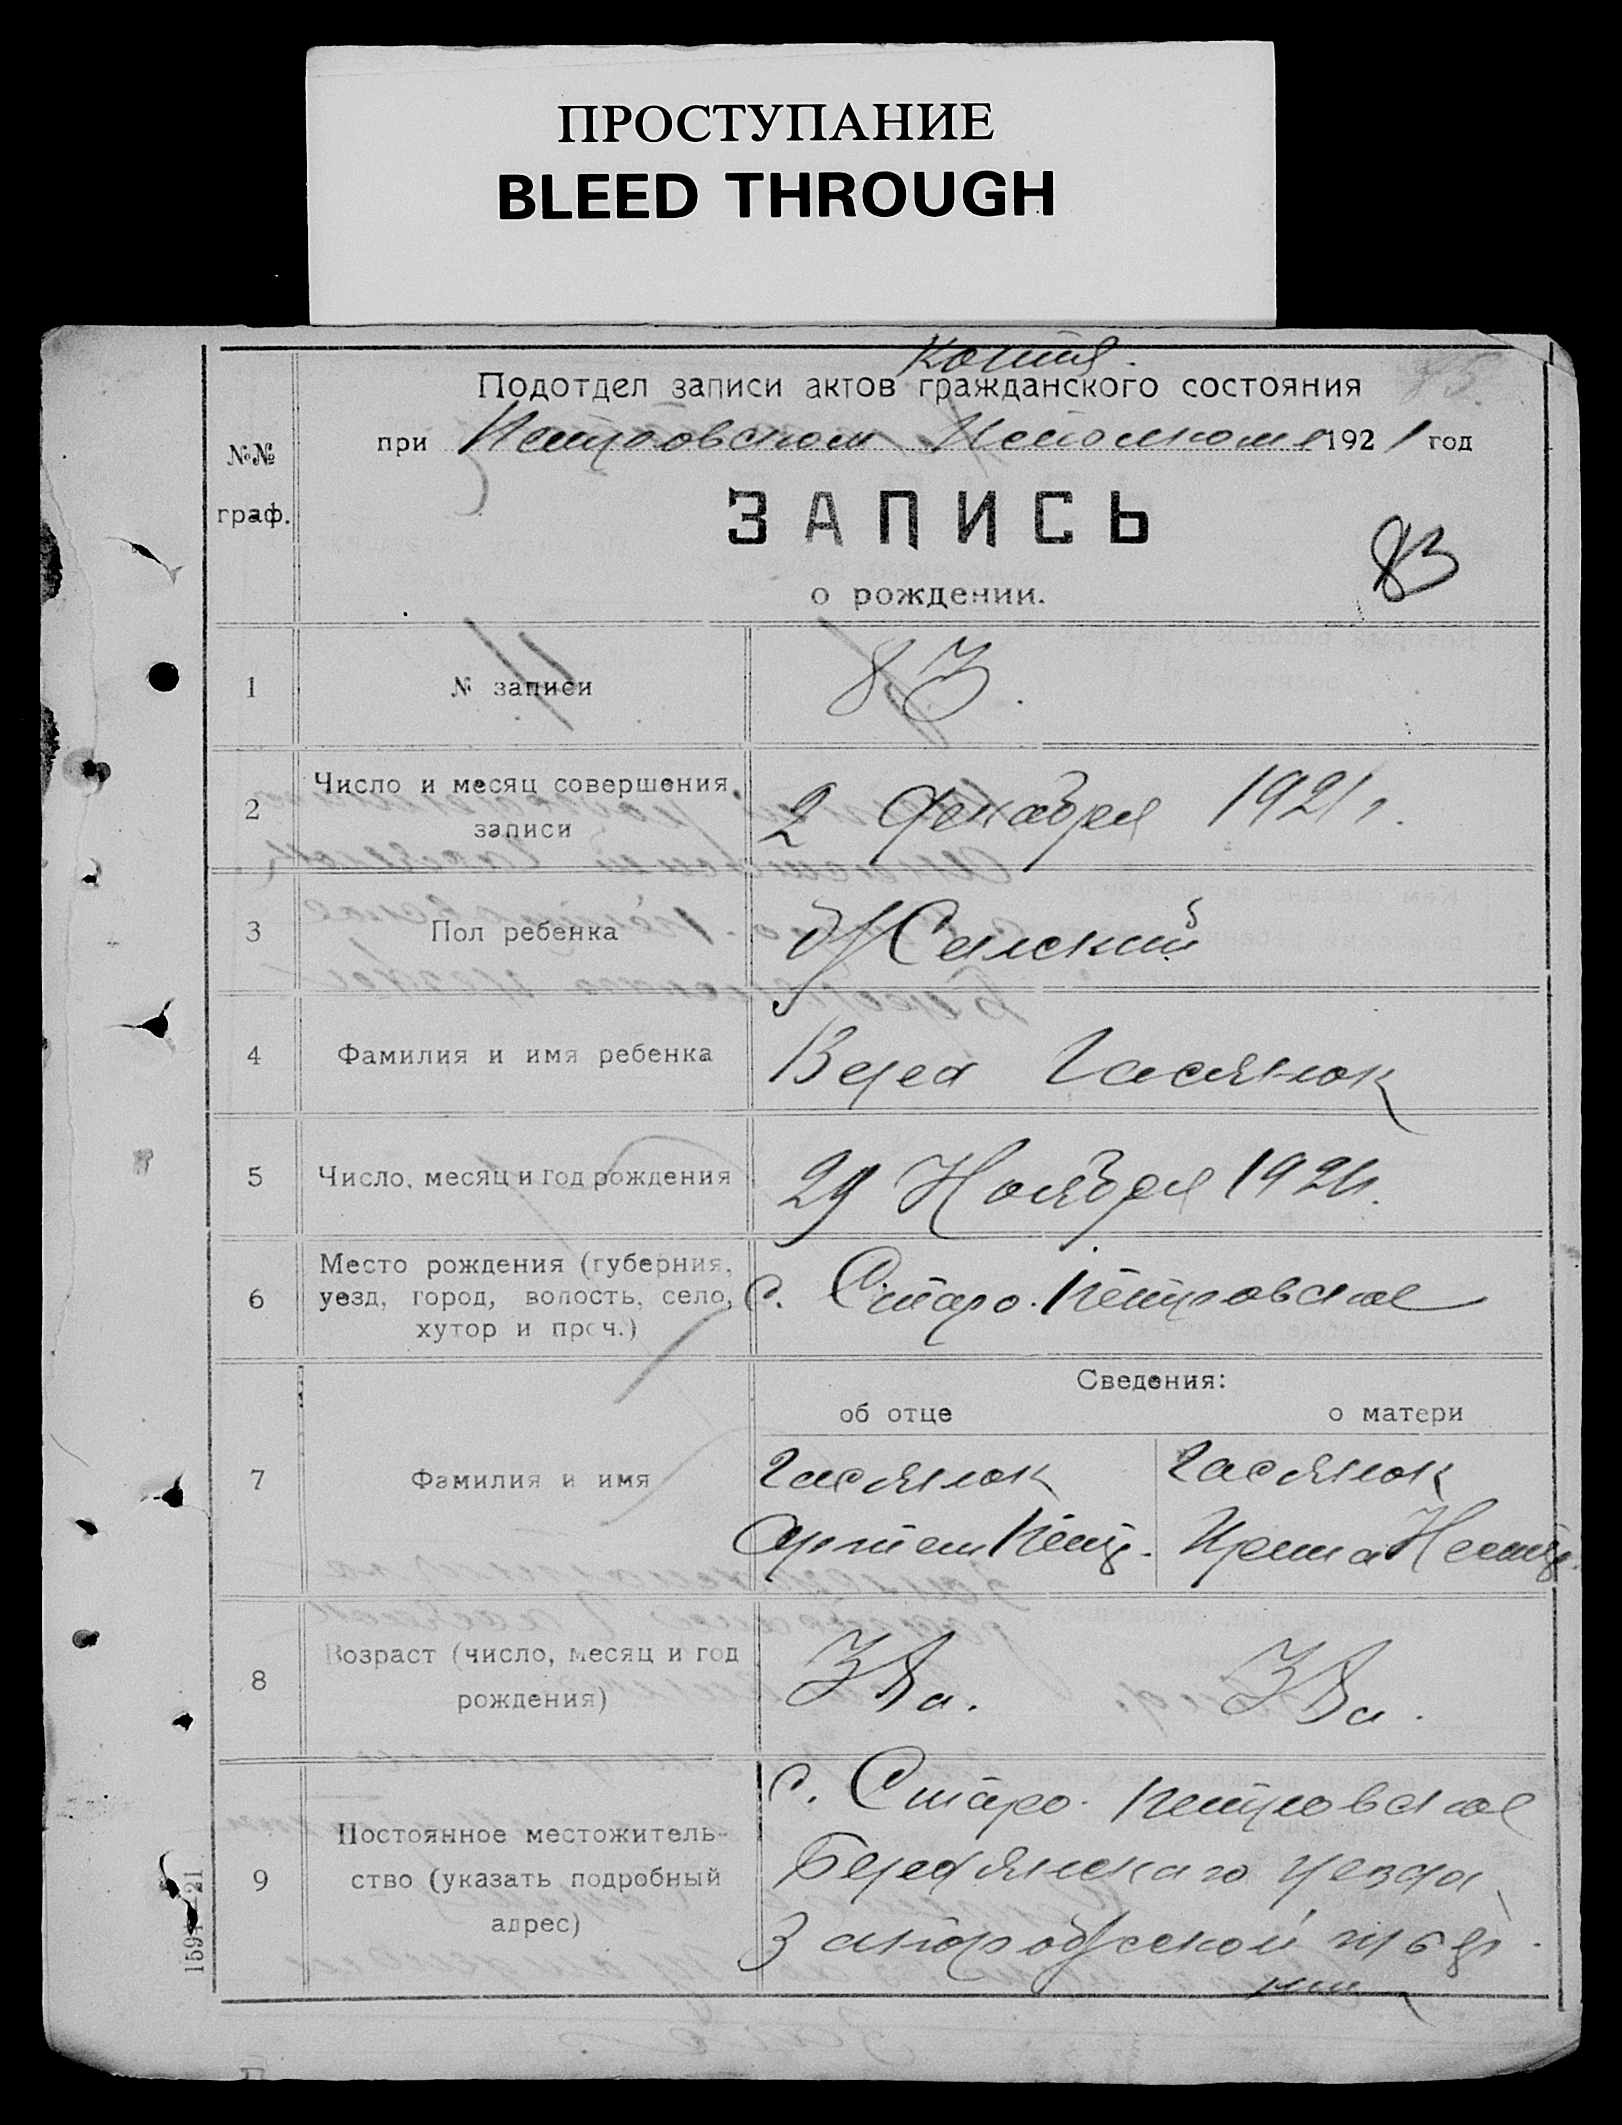 ПРОСТУПАНИЕ
BLEED THROUGH
Копия.
Подотдел записи актов гражданского состояния
при Петровском Исполкоме 1921 год
№№
граф.
ЗАПИСЬ
83
о рождении.
1 № записи 83.
2 Число и месяц совершения записи 2 Декабря 1921 г.
3 Пол ребенка
4 Фамилия и имя ребенка Вера Гасянюк
5 Число, месяц и год рождения 29 Ноября 1921 г.
6 Место рождения (губерния, уезд, город, волость, село, хутор и проч.) с. Старо-Петровское
Сведения:
об отце о матери
7 Фамилия и имя
Гасянюк Гасянюк
Артем Петр. Ирина
8 Возраст (число, месяц и год рождения)
9 Постоянное местожитель-
ство (указать подробный
адрес)
с. Старо-Петровское
Бердянскаго уезда
Запорожской губер
нии
159 21